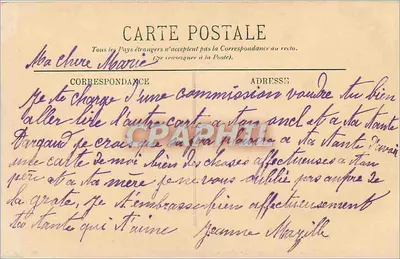 CARTE POSTALE
Tous les Pays étrangers n'acceptent pas la Correspondance au recto.
(Se renseigner à la Poste).
Ma chere Marie
CORRESPONDANCE ADRESSE
Je te charge d'une commission voudra tu bien
aller lire l'autre carte a ton oncl et a ta tante
Dargaud je crois que la fera plaisir a ta tante d'avoir
une carte de moi bien des choses affectueuses a ton
père et a ta mère je ne vous oublie pas
je t'embrasse bien affectueusement
ta tante qui t'aime Jeanne Mazille
CPARHTI